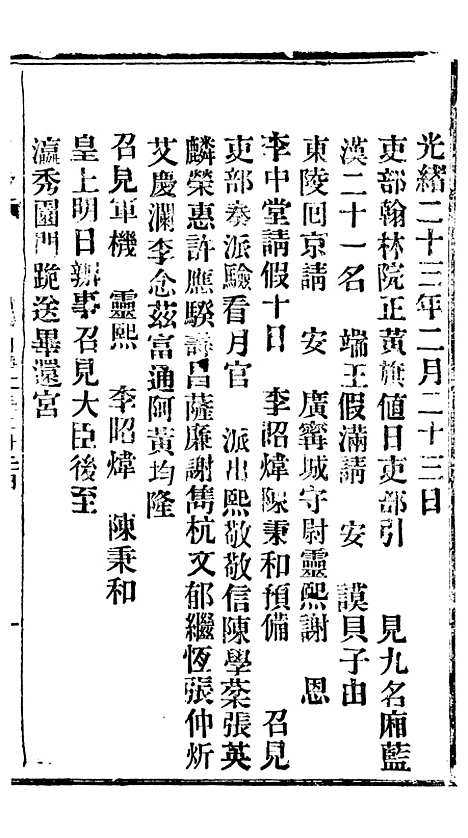 光緒二十三年二月二十三日
吏部翰林院正黃旗值日吏部引　見九名廂藍
漢二十一名　端王假滿請　安　謨貝子由
東陵回京請　安　廣寗城守尉靈熙謝　恩
李中堂請假十日　李昭煒陳秉和預備　召見
吏部奏派驗看月官　派出熙敬敬信陳學棻張英
麟榮惠許應騤壽昌薩廉謝雋杭文郁繼恆張仲炘
艾慶瀾李念茲富通阿黃均隆
召見軍機　靈熙　李昭煒　陳秉和
皇上明日辦事召見大臣後至
瀛秀園門跪送畢還宮